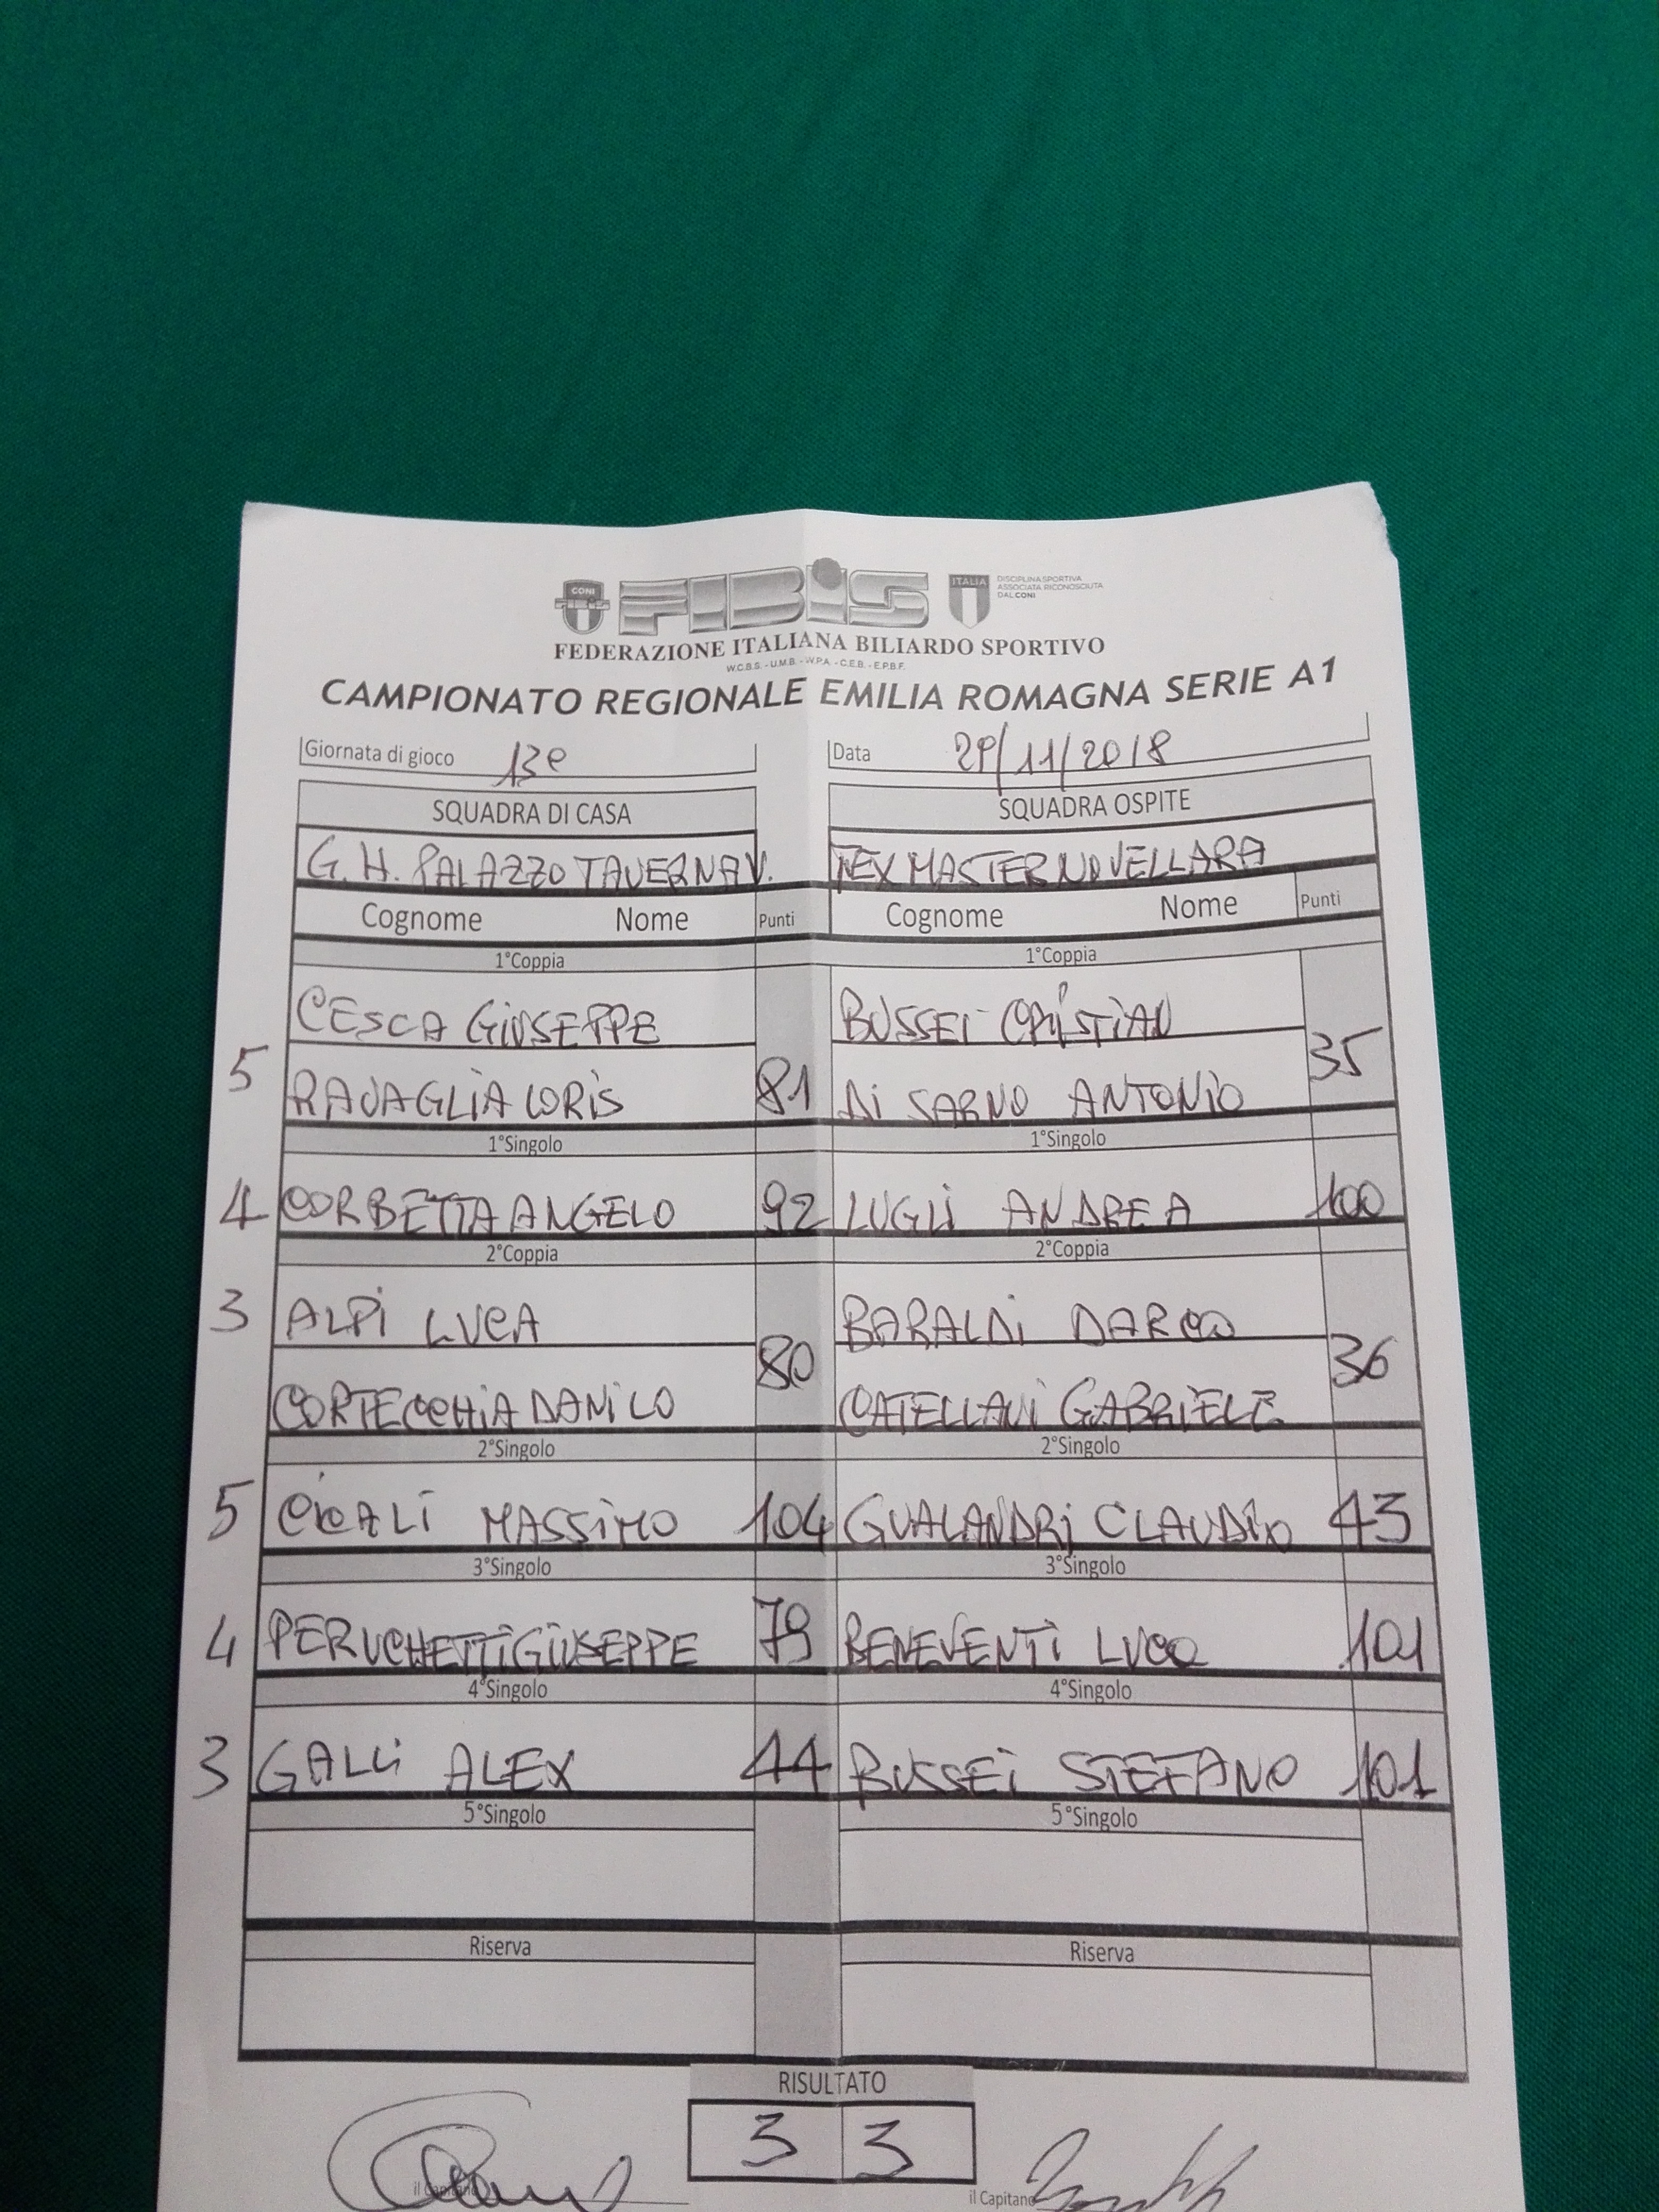 CONI
FIBiS
ITALIA
DISCIPLINA SPORTIVA
ASSOCIATA RICONOSCIUTA
DAL CONI
FEDERAZIONE ITALIANA BILIARDO SPORTIVO
W.C.B.S. - U.M.B. - W.P.A. - C.E.B. - E.P.B.F.
CAMPIONATO REGIONALE EMILIA ROMAGNA SERIE A1
Giornata di gioco 13e Data 29/11/2018
SQUADRA DI CASA SQUADRA OSPITE
G.H. PALAZZO TAVERNA V. TEX MASTER NOVELLARA
Cognome Nome Punti Cognome Nome Punti
1°Coppia 1°Coppia
CESCA GIUSEPPE BUSSEI CRISTIAN
5 RAVAGLIA LORIS 81 DI SARNO ANTONIO 35
1°Singolo 1°Singolo
4 CORBETTA ANGELO 92 LUGLI ANDREA 100
2°Coppia 2°Coppia
3 ALPI LUCA BARALDI
CORTECCHIA DANILO 80 CATELLANI GABRIELE 36
2°Singolo 2°Singolo
5 CICALI MASSIMO 104 GUALANDRI CLAUDIO 43
3°Singolo 3°Singolo
4 PERUCHETTI GIUSEPPE 79 BENEVENTI LUCA 101
4°Singolo 4°Singolo
3 GALLI ALEX 44 BUSSEI STEFANO 101
5°Singolo 5°Singolo
Riserva Riserva
RISULTATO
3 3
il Capitano il Capitano